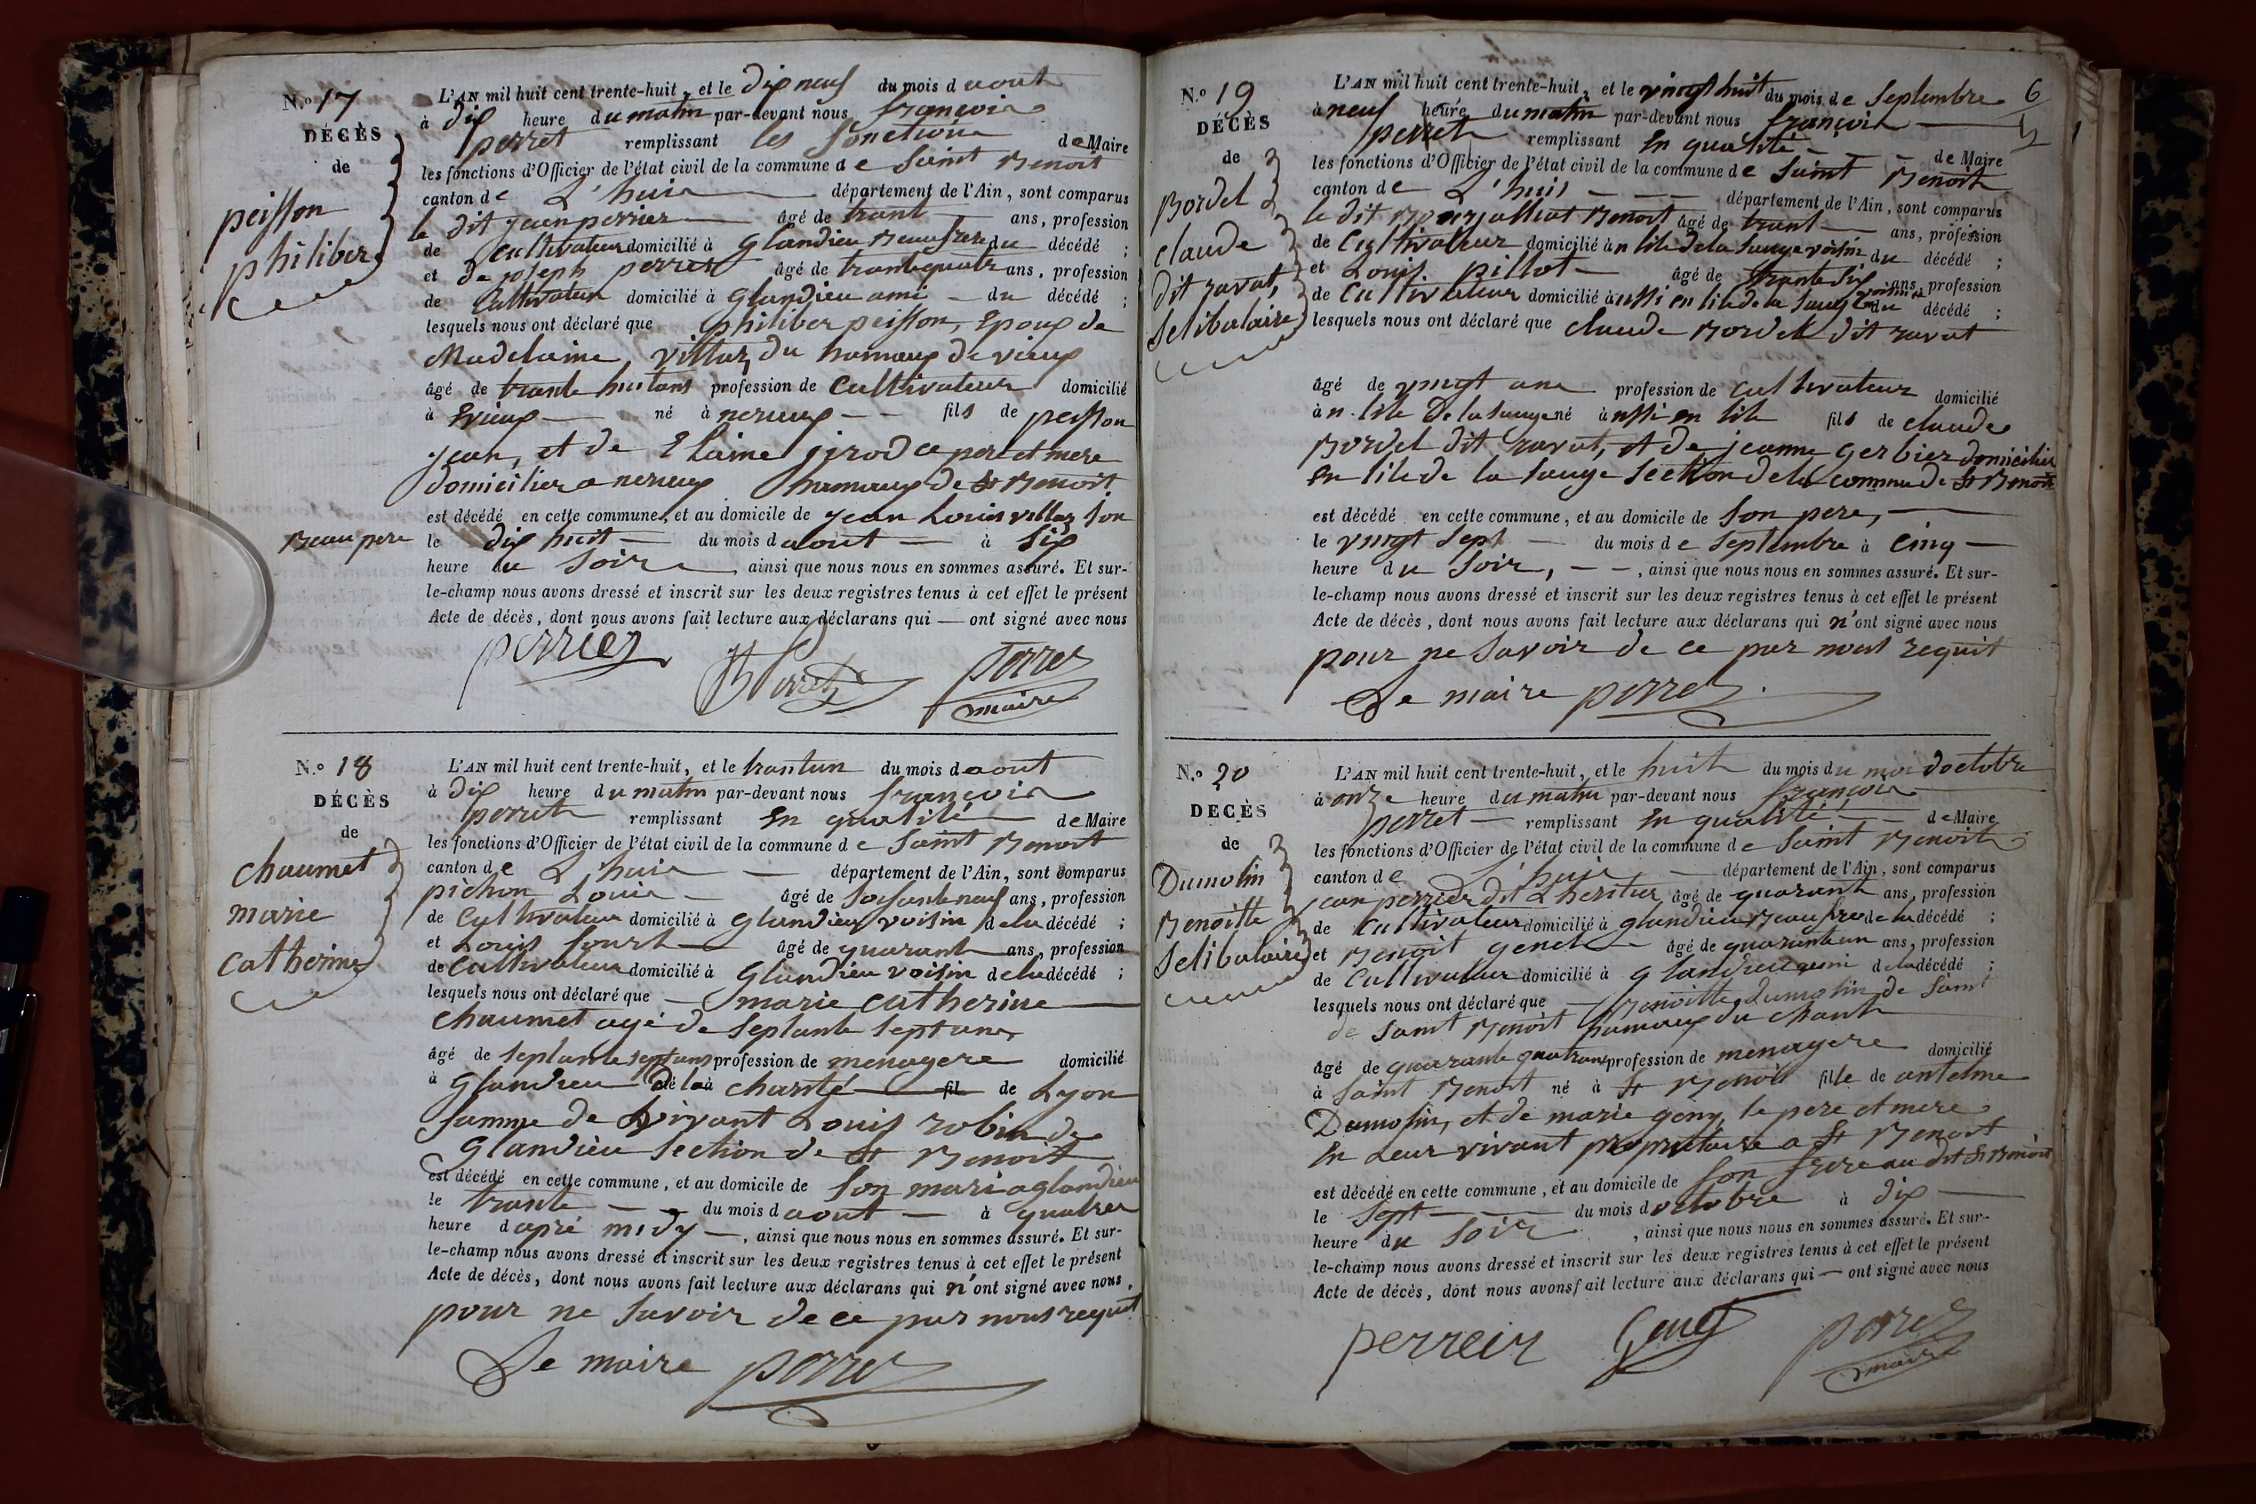 N.o 17
DÉCÈS
de
peisson
philiber
L'AN mil huit cent trente-huit, et le dix neuf du mois d aout
à dix heure du matin par-devant nous françois
perret remplissant les fonctions de Maire
les fonctions d'Officier de l'état civil de la commune de Saint Benoit
canton de L'huis département de l'Ain, sont comparus
le dit jean perrier âgé de trant ans, profession
de cultivateur domicilié à Glandieu Beaufrere du décédé ;
et de joseph perret âgé de trantequatr ans, profession
de Cultivateur domicilié à Glandieu ami du décédé ;
lesquels nous ont déclaré que philiber peisson, Epoux de
Madelaine villar, du hamaux de vieux
âgé de trante huitans profession de Cultivateur domicilié
à Evieux né à nerieux fils de peisson
jean, et de jirod ce pere et mere
domicilier a nerieux hamaux de St Benoit
est décédé en cette commune, et au domicile de jean Louis villar son
Beau pere
le dix huit du mois d aout à six
heure du Soir, ainsi que nous nous en sommes assuré. Et sur-
le-champ nous avons dressé et inscrit sur les deux registres tenus à cet effet le présent
Acte de décès, dont nous avons fait lecture aux déclarans qui — ont signé avec nous
perrier Perret perret
maire
N.o 18
DÉCÈS
de
chaumet
marie
catherine
L'AN mil huit cent trente-huit, et le trantun du mois d aout
à dix heure du matin par-devant nous françois
perret remplissant En qualité de Maire
les fonctions d'Officier de l'état civil de la commune de Saint Benoit
canton de L'huis département de l'Ain, sont comparus
pichon Louis âgé de soisante neuf ans, profession
de Cultivateur domicilié à Glandieu voisin de la décédé ;
et Louis âgé de quarant ans, profession
de Cultivateur domicilié à Glandieu voisin de la décédé ;
lesquels nous ont déclaré que marie catherine
chaumet agé de Septante Septans
âgé de Septante Septans profession de menagere domicilié
à Glandieu né de la à charité fil de Lyon
famme de vivant Louis robin de
Glandieu Section de St Benoit
est décédé en cette commune, et au domicile de Son mari a glandieu
le trante du mois d aout à quatres
heure d apré midy, ainsi que nous nous en sommes assuré. Et sur-
le-champ nous avons dressé et inscrit sur les deux registres tenus à cet effet le présent
Acte de décès, dont nous avons fait lecture aux déclarans qui n'ont signé avec nous,
pour ne savoir de ce par nous requit
Le maire perret
N.o 19
DÉCÈS
de
Bordel
claude
dit ravat,
Selibataire
6
L'AN mil huit cent trente-huit, et le vingt huit du mois de Septembre
à neuf heure du matin par-devant nous françois
perret remplissant En qualité de Maire
les fonctions d'Officier de l'état civil de la commune de Saint Benoit
canton de L'huis département de l'Ain, sont comparus
le dit Benoit âgé de trant ans, profession
de Cultivateur domicilié à n lile de la Sauge voisin du décédé ;
et Louis pillot âgé de trante six ans, profession
de Cultivateur domicilié à ussi en lile de la Sauge voisin du décédé ;
lesquels nous ont déclaré que claude Bordel dit ravat
âgé de vingt ans profession de cultivateur domicilié
à n lile de la Sauge né à ussi en lile fils de claude
Bordel dit ravat, et de jeanne gerbier domicilier
en lile de la Sauge Section de la commune de St Benoit
est décédé en cette commune, et au domicile de Son pere,
le vingt Sept du mois de Septembre à Cinq
heure du Soir, ainsi que nous nous en sommes assuré. Et sur-
le-champ nous avons dressé et inscrit sur les deux registres tenus à cet effet le présent
Acte de décès, dont nous avons fait lecture aux déclarans qui n'ont signé avec nous
pour ne savoir de ce par nous requit
Le maire perret
N.o 20
DÉCÈS
de
Dumolin
Benoitte
Selibataire
L'AN mil huit cent trente-huit, et le huit du mois du moi doctobre
à onze heure du matin par-devant nous françois
perret remplissant En qualité de Maire
les fonctions d'Officier de l'état civil de la commune de Saint Benoit
canton de L'huis département de l'Ain, sont comparus
jean perrier dit L'heritier âgé de quarant ans, profession
de Cultivateur domicilié à glandieu Beaufrere de la décédé ;
et Benoit genet âgé de quarantun ans, profession
de Cultivateur domicilié à Glandieu ami de la décédé ;
lesquels nous ont déclaré que Benoitte dumolin de Saint
de Saint Benoit hamaux du chant
âgé de quarante quatrans profession de menagere domicilié
à Saint Benoit né à St Benoit fille de antelme
Dumolin, et de marie geny le pere et mere
En Leur vivant propriétaire a St Benoit
est décédé en cette commune, et au domicile de Son frere au dit St Benoit
le Sept du mois d octobre à dix
heure du Soir, ainsi que nous nous en sommes assuré. Et sur-
le-champ nous avons dressé et inscrit sur les deux registres tenus à cet effet le présent
Acte de décès, dont nous avons fait lecture aux déclarans qui — ont signé avec nous
perreir perret
maire